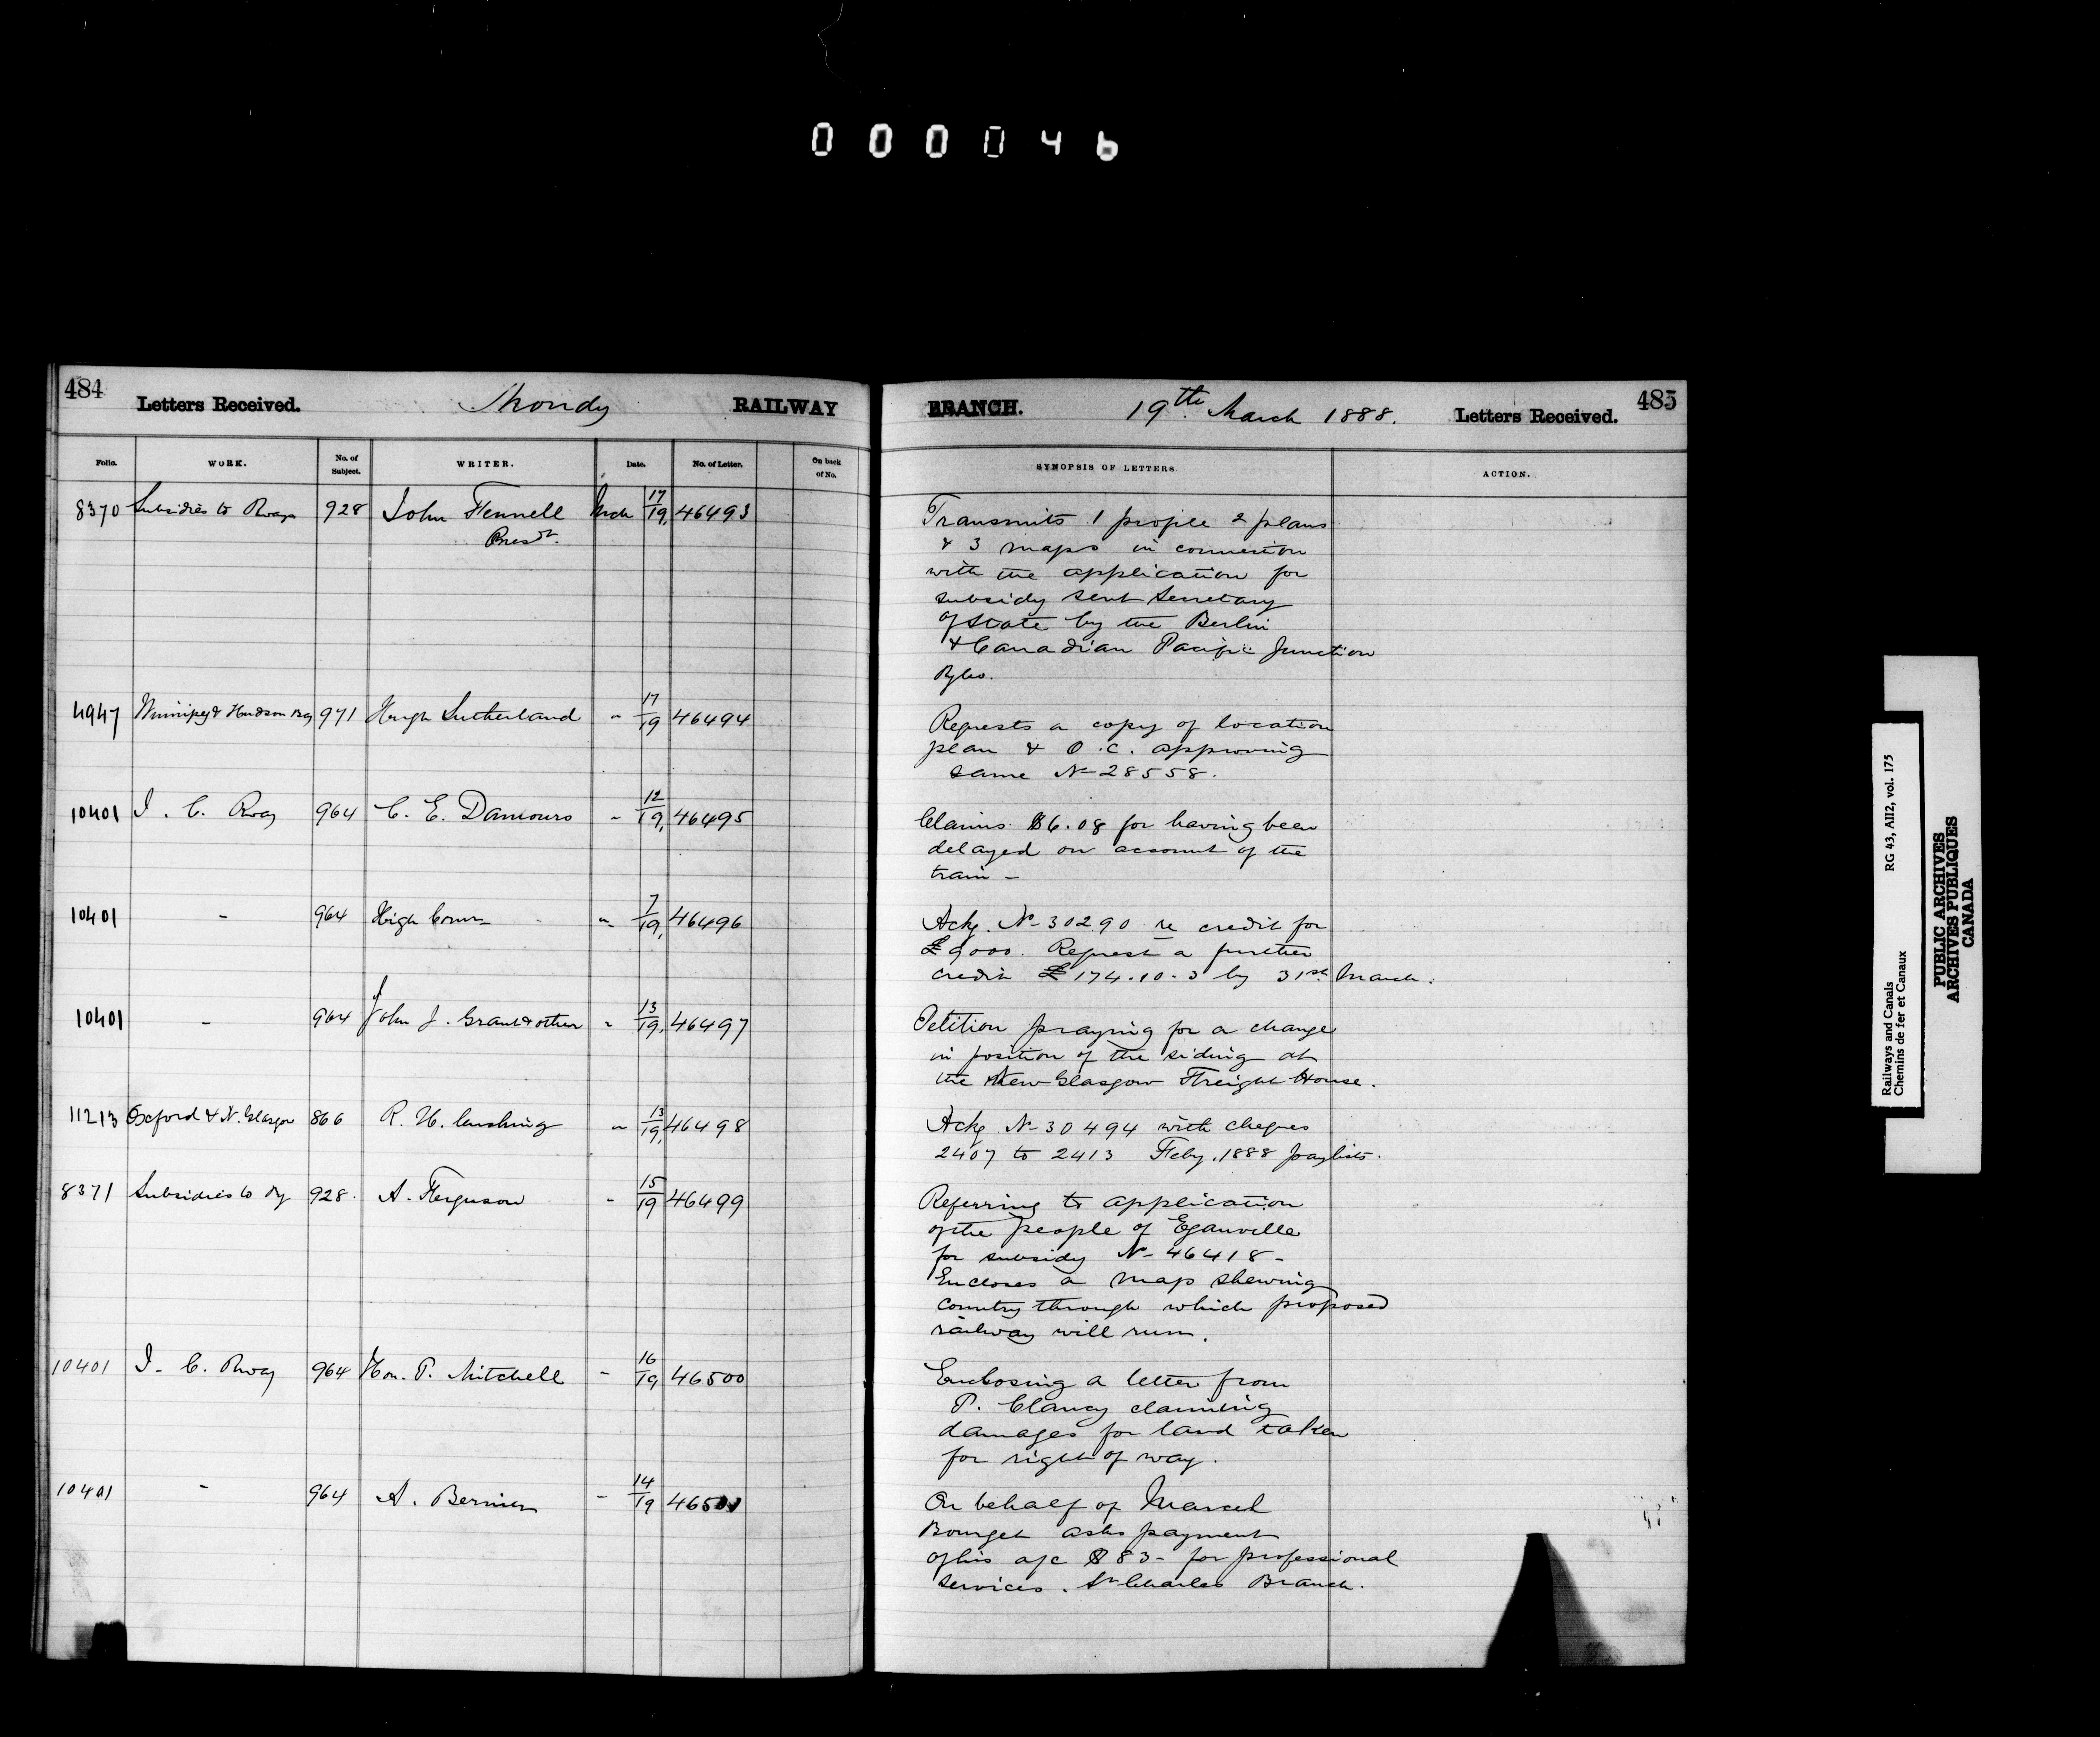 000046
484
Letters Received.
Monday
RAILWAY
Folio.
WORK.
No. of Subject.
WRITER.
Date.
No. of Letter.
On back of No.
8370 Subsidies to Rways 928 John Fennell Mch 17/19, 46493
Presdt.
4947 Winnipeg & Hudson Bay 971 Hugh Sutherland " 17/19 46494
10401 I. C. Rway 964 C. E. Damours " 12/19, 46495
10401 " 964 High Comr " 7/19, 46496
10401 " 964 John J. Grant & other " 13/19, 46497
11213 Oxford & N. Glasgow 866 R. H. Cushing " 13/19, 46498
8371 Subsidies to Ry 928. A. Ferguson " 15/19 46499
10401 I. C. Rway 964 Hon. P. Mitchell " 16/19 46500
10401 " 964 A. Bernier " 14/19 46501
BRANCH.
19th March 1888.
Letters Received.
485
SYNOPSIS OF LETTERS.
ACTION.
Transmits 1 profile 2 plans
& 3 maps in connection
with the application for
subsidy sent Secretary
of State by the Berlin
& Canadian Pacific Junction
Ry Co.
Requests a copy of location
plan & O.C. approving
same No 28558.
Claims $6.08 for having been
delayed on account of the
train -
Ackg. No 30290 re credit for
£9000. Request a further
credit £174.10.3 by 31st March.
Petition praying for a change
in position of the siding at
the New Glasgow Freight House.
Ackg No 30494 with cheques
2407 to 2413 Feby. 1888 paylists.
Referring to application
of the people of Eganville
for subsidy No 46418 -
Encloses a map shewing
country through which proposed
railway will run.
Enclosing a letter from
P. Clancy claiming
damages for land taken
for right of way.
On behalf of Marcel
Bourget asks payment
of his a/c $83- for professional
services. St Charles Branch.
Railways and Canals RG 43, AII2, vol. 175
Chemins de fer et Canaux
PUBLIC ARCHIVES
ARCHIVES PUBLIQUES
CANADA